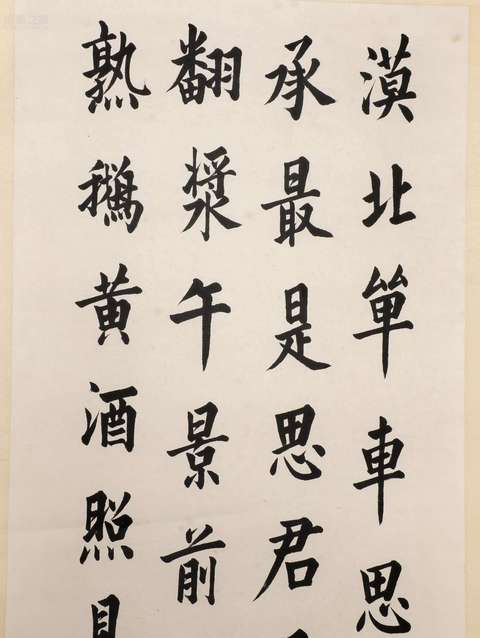 漠北單車思
承最是思君
翻漿午景前
熟鵝黄酒照